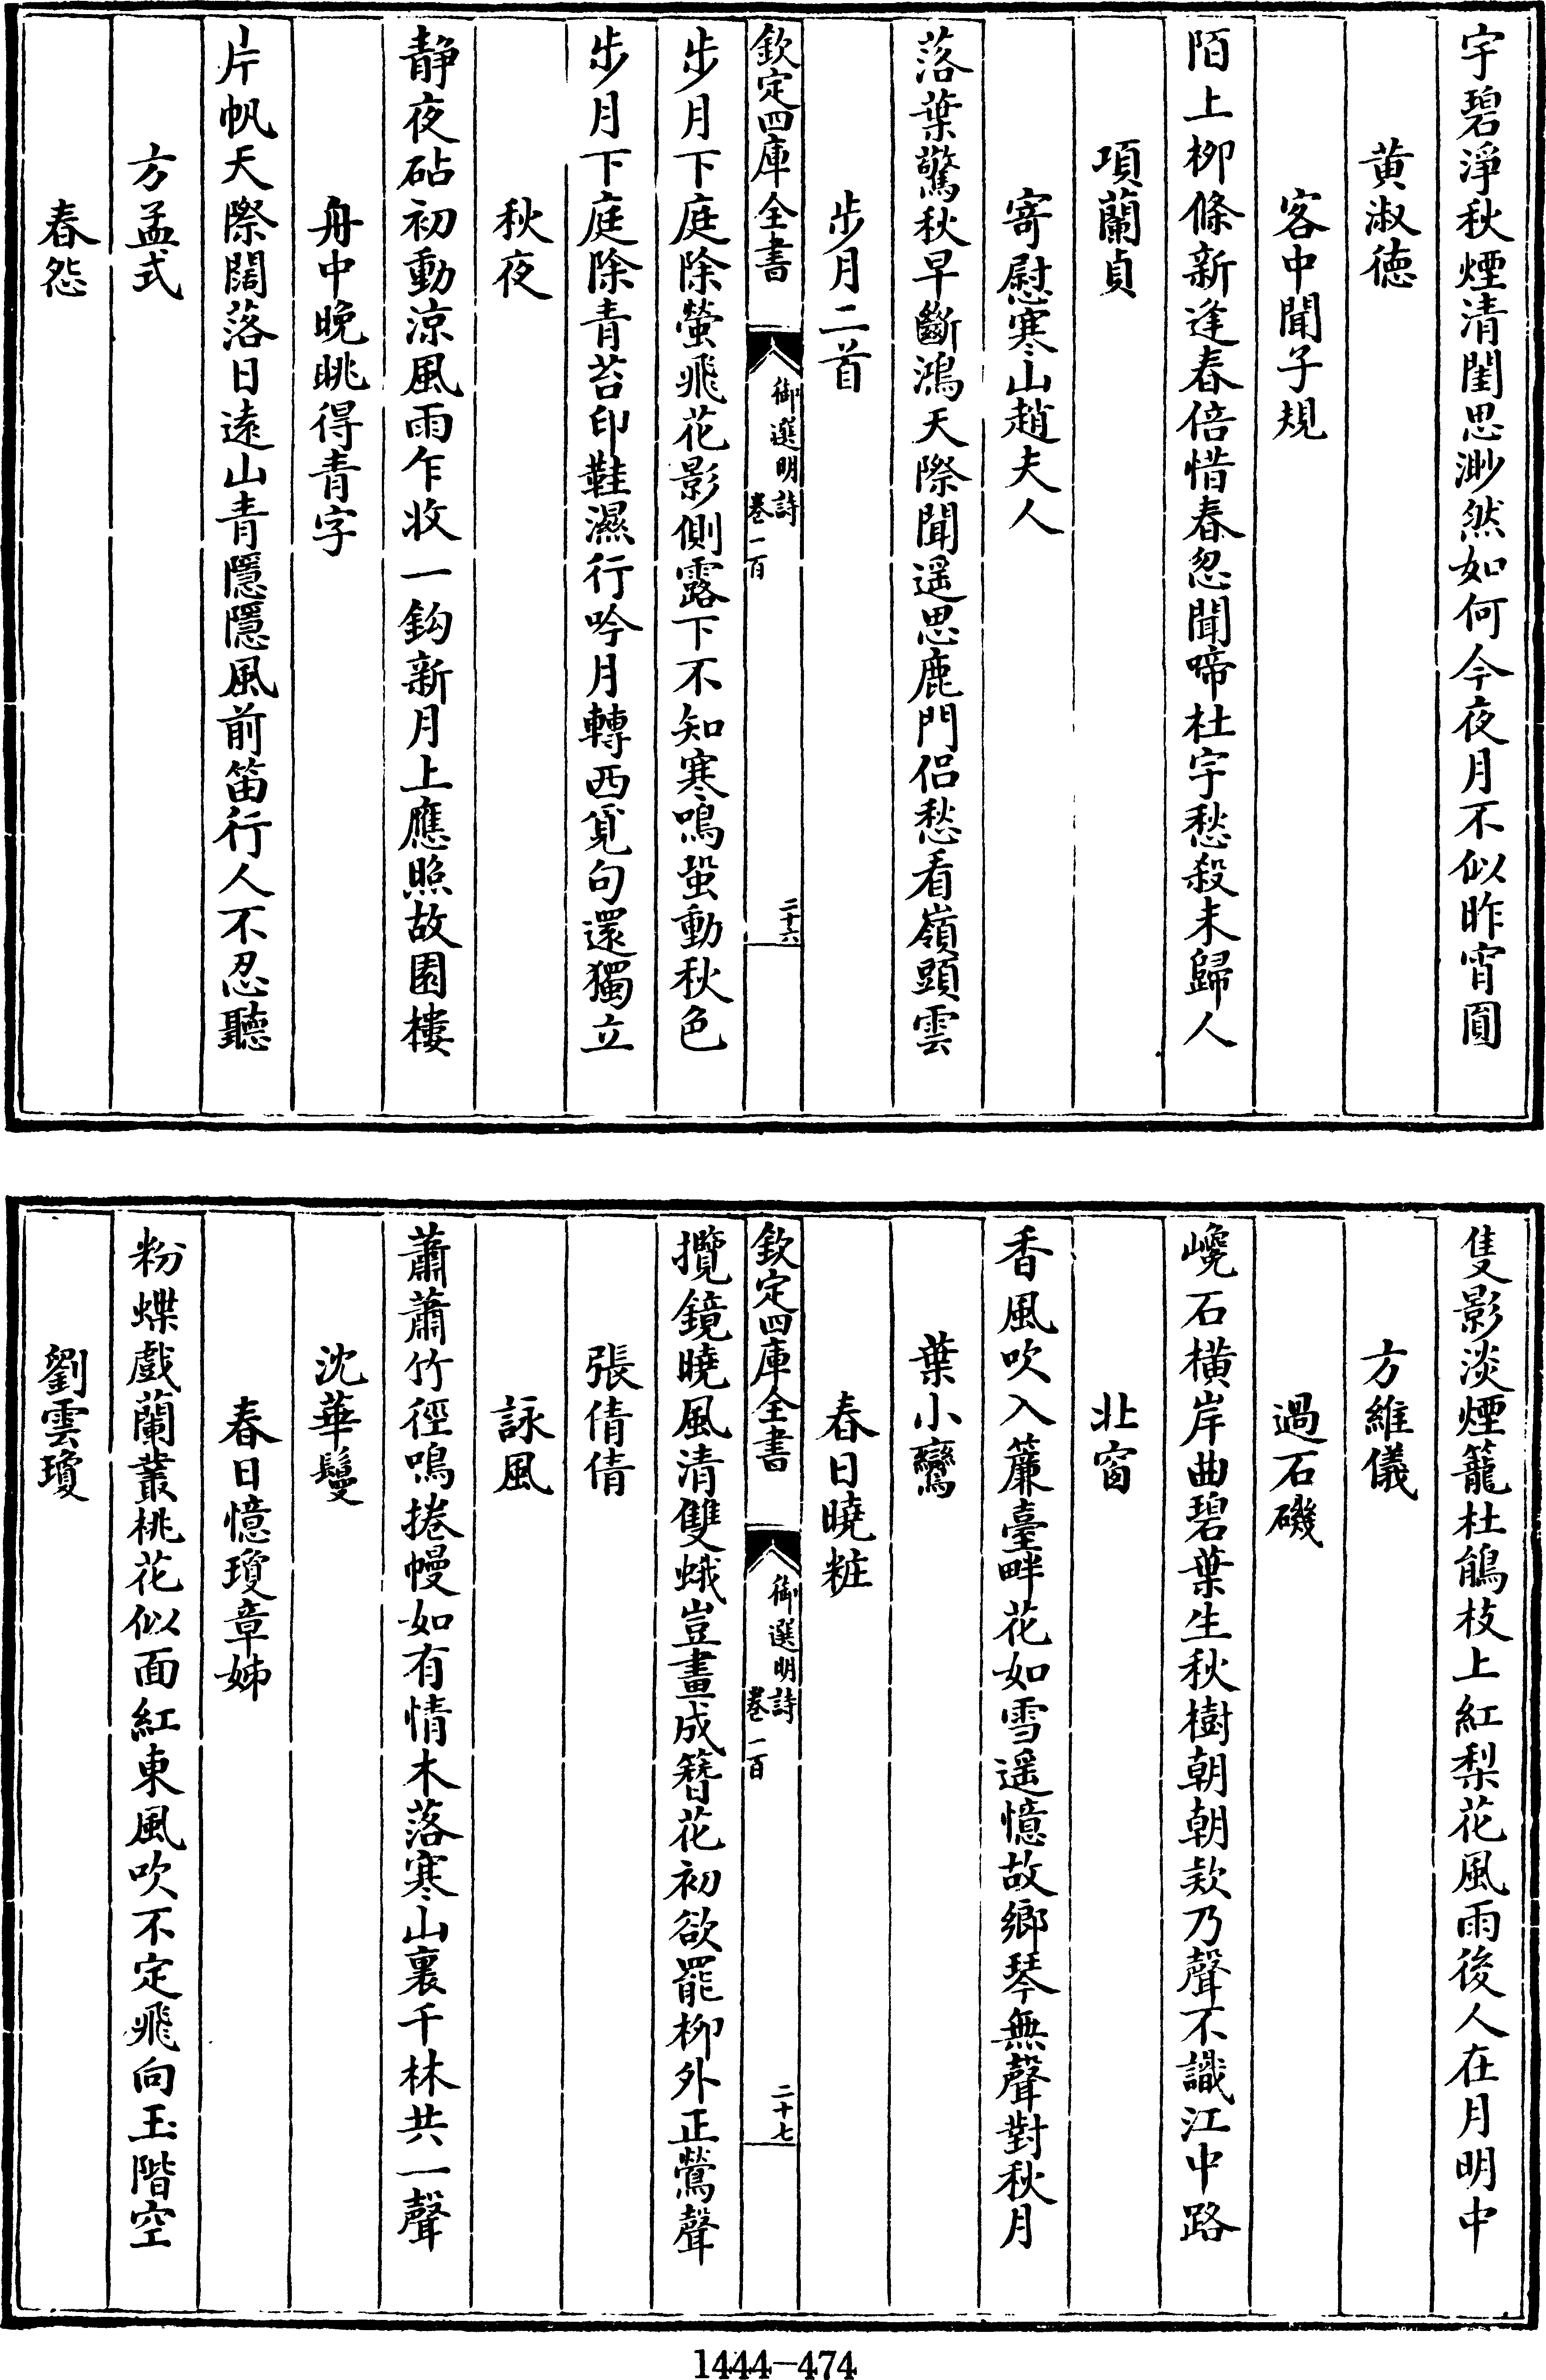 宇碧淨秋煙清閨思渺然如何今夜月不似昨宵圓
黄淑德
客中聞子規
陌上柳條新逢春倍惜春忽聞啼杜宇愁殺未歸人
項蘭貞
寄慰寒山趙夫人
落葉驚秋早斷鴻天際聞遥思鹿門侣愁看嶺頭雲
步月二首
欽定四庫全書
御選明詩
卷一百
二十六
步月下庭除螢飛花影側露下不知寒鳴蛩動秋色
步月下庭除青苔印鞋濕行吟月轉西覓句還獨立
秋夜
静夜砧初動凉風雨乍收一鈎新月上應照故園樓
舟中晚眺得青字
片帆天際闊落日遠山青隱隱風前笛行人不忍聽
方孟式
春怨
隻影淡煙籠杜鵑枝上紅梨花風雨後人在月明中
方維儀
過石磯
巉石橫岸曲碧葉生秋樹朝朝欵乃聲不識江中路
北窗
香風吹入簾臺畔花如雪遥憶故鄉琴無聲對秋月
葉小鸞
春日曉粧
欽定四庫全書
御選明詩
卷一百
二十七
攬鏡曉風清雙蛾豈畫成簪花初欲罷柳外正鶯聲
張倩倩
詠風
蕭蕭竹徑鳴捲幔如有情木落寒山裏千林共一聲
沈華鬘
春日憶瓊章姊
粉蝶戲蘭叢桃花似面紅東風吹不定飛向玉階空
劉雲瓊
1444-474